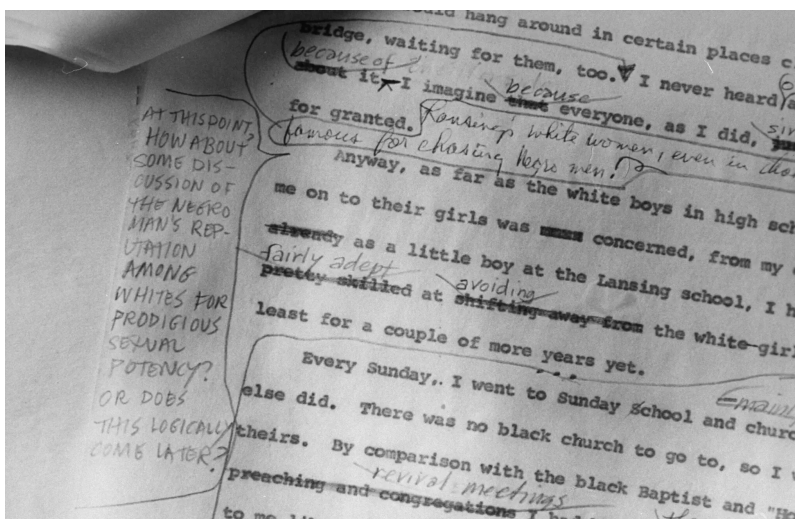 hang around in certain places
bridge, waiting for them, too. I never heard
because of
about it I imagine that everyone, as I did,
because
for granted. Lansing's white women, even in
famous for chasing Negro men.
Anyway, as far as the white boys in high
me on to their girls was concerned, from my
already as a little boy at the Lansing school, I
fairly adept avoiding
pretty skilled at shifting away from the white-girl
least for a couple of more years yet.
Every Sunday, I went to Sunday School and
else did. There was no black church to go to, so I
theirs. By comparison with the black Baptist and
revival meetings
preaching and congregations I
to me
AT THIS POINT,
HOW ABOUT
SOME DIS-
CUSSION OF
THE NEGRO
MAN'S REP-
UTATION
AMONG
WHITES FOR
PRODIGIOUS
SEXUAL
POTENCY?
OR DOES
THIS LOGICALLY
COME LATER?